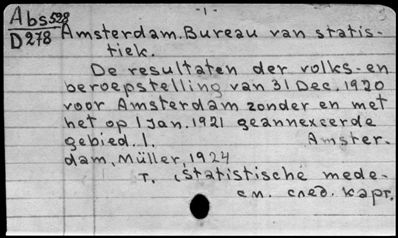 -1-
Abs528 Amsterdam. Bureau van statis-
D278 tiek.
De resultaten der volks- en
beroepstelling van 31 Dec. 1920
voor Amsterdam zonder en met
het op 1 Jan. 1921 geannexeerde
gebied. 1. Amster-
dam, Müller, 1924
т. (statistische mede-
см. след. карт.